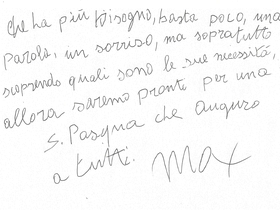 che ha più bisogno, basta poco, una
parola, un sorriso, ma sopratutto
scoprendo quali sono le sue necessità,
allora saremo pronti per una
S. Pasqua che auguro
a tutti. Max